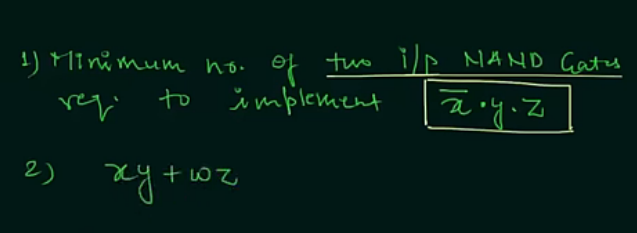 1) Minimum no. of two i/p NAND Gates
req. to implement x̅·y·z
2) xy + wz